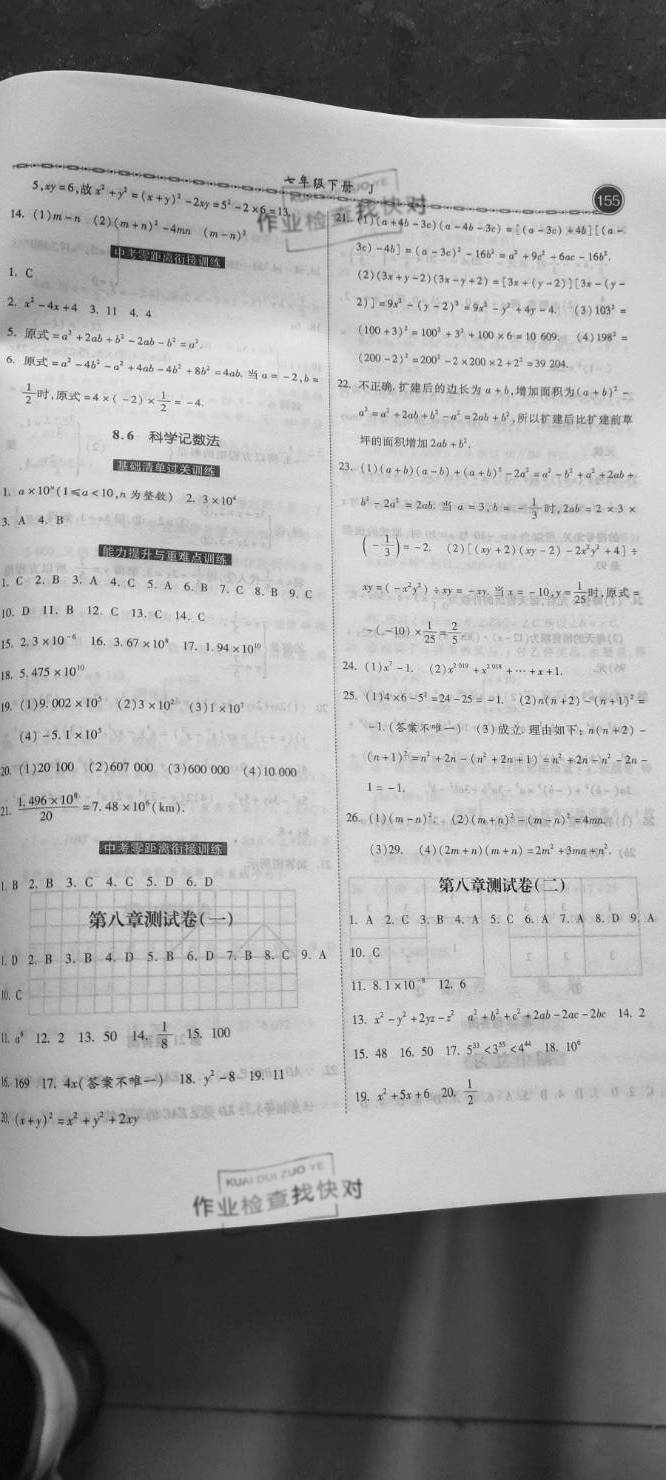 七年级下册 J
155
5,xy=6,故x²+y²=(x+y)²-2xy=5²-2×6=13.
14. (1)m-n (2)(m+n)²-4mn (m-n)²
中考零距离衔接训练
1. C
2. x²-4x+4 3. 11 4. 4
5. 原式=a²+2ab+b²-2ab-b²=a².
6. 原式=a²-4b²-a²+4ab-4b²+8b²=4ab. 当a=-2,b=
1/2时,原式=4×(-2)×1/2=-4.
8.6 科学记数法
基础清单过关训练
1. a×10ⁿ(1≤a<10,n为整数) 2. 3×10⁴
3. A 4. B
能力提升与重难点训练
1. C 2. B 3. A 4. C 5. A 6. B 7. C 8. B 9. C
10. D 11. B 12. C 13. C 14. C
15. 2.3×10⁻⁶ 16. 3.67×10⁸ 17. 1.94×10¹⁰
18. 5.475×10¹⁰
19. (1)9.002×10⁵ (2)3×10² (3)1×10⁷
(4)-5.1×10⁵
20. (1)20 100 (2)607 000 (3)600 000 (4)10 000
21. 1.496×10⁸/20=7.48×10⁶(km).
中考零距离衔接训练
1. B 2. B 3. C 4. C 5. D 6. D
第八章测试卷(一)
1. D 2. B 3. B 4. D 5. B 6. D 7. B 8. C 9. A
10. C
11. a⁶ 12. 2 13. 50 14. 1/8 15. 100
16. 169 17. 4x(答案不唯一) 18. y²-8 19. 11
20. (x+y)²=x²+y²+2xy
21. (1)(a+4b-3c)(a-4b-3c)=[(a-3c)+4b][(a-
3c)-4b]=(a-3c)²-16b²=a²+9c²-6ac-16b².
(2)(3x+y-2)(3x-y+2)=[3x+(y-2)][3x-(y-
2)]=9x²-(y-2)²=9x²-y²+4y-4. (3)103²=
(100+3)²=100²+3²+100×6=10 609. (4)198²=
(200-2)²=200²-2×200×2+2²=39 204.
22. 不正确. 扩建后的边长为a+b,增加面积为(a+b)²-
a²=a²+2ab+b²-a²=2ab+b²,所以扩建后比扩建前草
坪的面积增加2ab+b².
23. (1)(a+b)(a-b)+(a+b)²-2a²=a²-b²+a²+2ab+
b²-2a²=2ab. 当a=3,b=-1/3时,2ab=2×3×
(-1/3)=-2. (2)[(xy+2)(xy-2)-2x²y²+4]÷
xy=(-x²y²)÷xy=-xy. 当x=-10,y=1/25时,原式=
-(-10)×1/25=2/5.
24. (1)x⁷-1. (2)x²⁰¹⁹+x²⁰¹⁸+…+x+1.
25. (1)4×6-5²=24-25=-1. (2)n(n+2)-(n+1)²=
-1.(答案不唯一) (3)成立. 理由如下:n(n+2)-
(n+1)²=n²+2n-(n²+2n+1)=n²+2n-n²-2n-
1=-1.
26. (1)(m-n)²; (2)(m+n)²-(m-n)²=4mn.
(3)29. (4)(2m+n)(m+n)=2m²+3mn+n².
第八章测试卷(二)
1. A 2. C 3. B 4. A 5. C 6. A 7. A 8. D 9. A
10. C
11. 8.1×10⁻⁸ 12. 6
13. x²-y²+2yz-z² a²+b²+c²+2ab-2ac-2bc 14. 2
15. 48 16. 50 17. 5³³<3⁵⁵<4⁴⁴ 18. 10⁶
19. x²+5x+6 20. 1/2
KUAI DUI ZUO YE
作业检查找快对